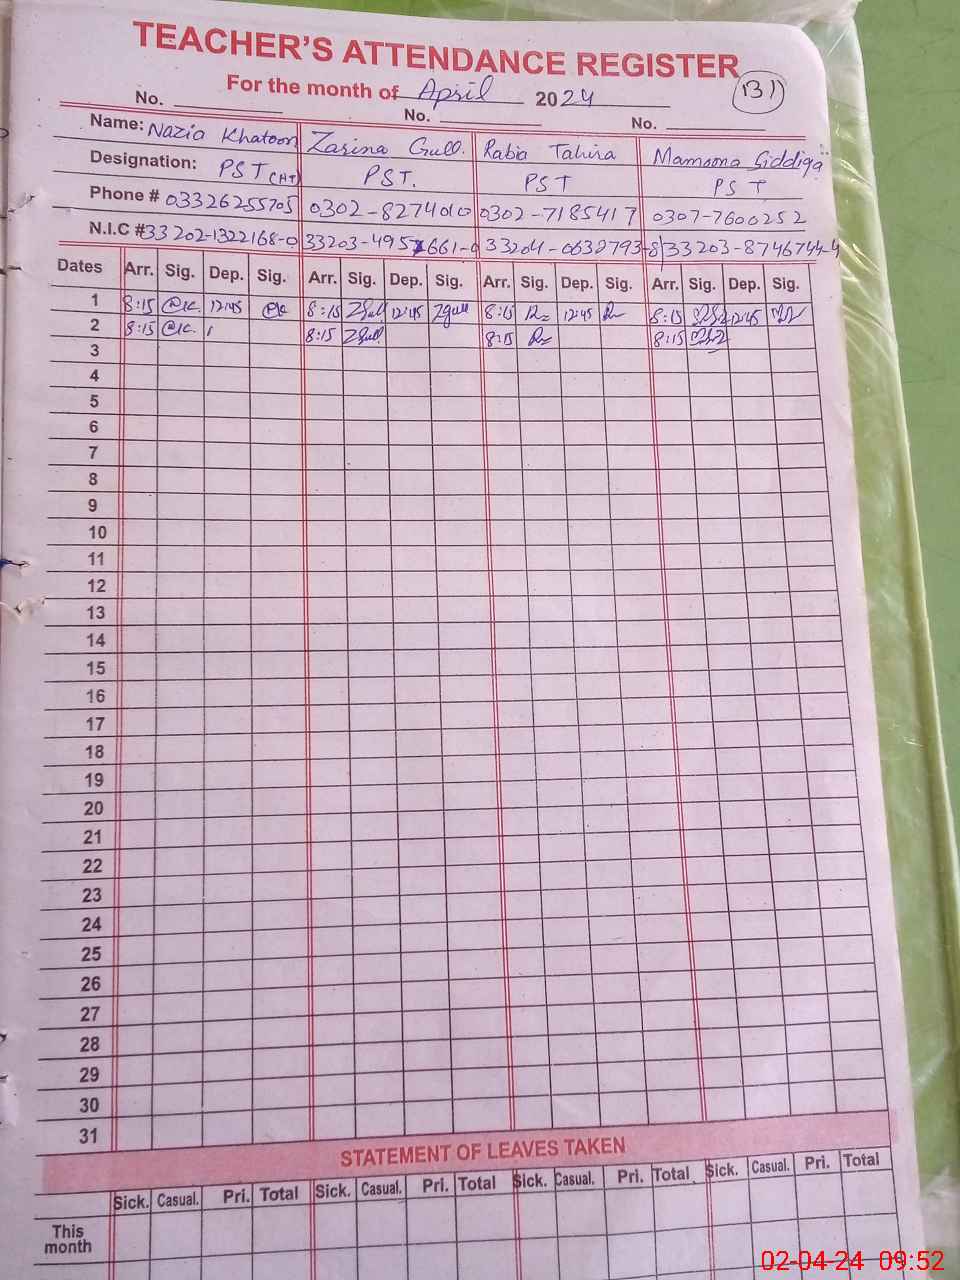 TEACHER'S ATTENDANCE REGISTER
For the month of April 2024
131
No. No. No.
Name: Nazia Khatoon Zarina Gull. Rabia Tahira Mamoona Siddiqa
Designation: PST (HT) PST. PST PST
Phone # 03326255705 0302-8274010 0302-7185417 0307-7600252
N.I.C # 33202-1322168-0 33204-0632793-8 33203-8746744-4
Dates Arr. Sig. Dep. Sig. Arr. Sig. Dep. Sig. Arr. Sig. Dep. Sig. Arr. Sig. Dep. Sig.
1 8:15 12:45 8:15 Zgull 12:45 Zgull 8:15 12:45 8:15 12:45
2 8:15 8:15 Zgull 8:15 8:15
3
4
5
6
7
8
9
10
11
12
13
14
15
16
17
18
19
20
21
22
23
24
25
26
27
28
29
30
31
STATEMENT OF LEAVES TAKEN
Sick. Casual. Pri. Total Sick. Casual. Pri. Total Sick. Casual. Pri. Total Sick. Casual. Pri. Total
This
month
02-04-24 09:52